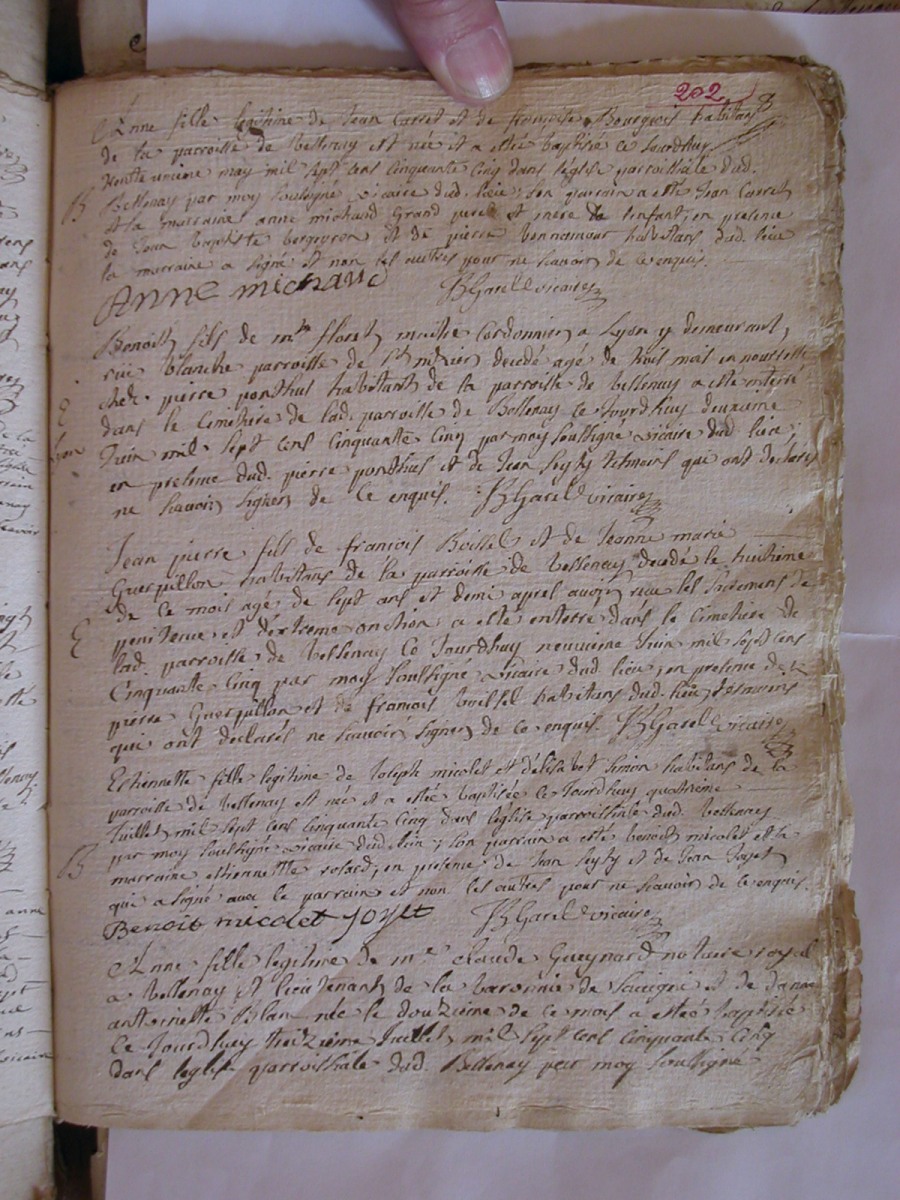 202
Anne fille legitime de Jean Carret et de françoise Bourgeois habitans
de la parroisse de Bessenay est née et a estée baptisée ce jourdhuy
trente unieme may mil sept cens cinquante cinq dans l'église parroissiale dud.
B Bessenay par moy soussigné vicaire dud. lieu; son parrain a esté Jean Carret
et la marraine anne michaud grand pere et mere de l'enfant, en présence
de Jean baptiste bergeron et de pierre bonnamour habitans dud. lieu
la marraine a signé et non les autres pour ne sçavoir de ce enquis.
Anne michaud Garel vicaire
Benoist fils de floret maitre Cordonnier a Lyon y demeurant,
rue blanche parroisse de St nizier decedé agé de huit mois en nourrisse
chez pierre ponthus habitant de la parroisse de bessenay a esté enterré
E dans le Cemetiere de lad. parroisse de Bessenay ce jourdhuy deuxieme
Lyon Juin mil sept cens cinquante cinq par moy soussigné vicaire dud. lieu;
en presence dud. pierre ponthus et de Jean Seyty temoins qui ont declarés
ne sçavoir signer de ce enquis. Garel vicaire
Jean pierre fils de françois Boissel et de Jeanne marie
Guerpillon habitans de la parroisse de Bessenay decedé le huitieme
de ce mois agé de sept ans et demi apres avoir receu les sacremens de
E penitence et d'extreme onction a esté enterré dans le cimetiere de
lad. parroisse de Bessenay ce jourdhuy neuvieme Juin mil sept cens
cinquante cinq par moy soussigné vicaire dud. lieu, en presence de
pierre Guerpillon et de françois boissel habitans dud. lieu temoins
qui ont déclarés ne sçavoir signer de ce enquis. Garel vicaire
Etiennette fille legitime de Joseph nicolet et d'élisabet Simon habitans de la
parroisse de Bessenay est née et a estée baptisée ce jourdhuy quatrieme
Juillet mil sept cens cinquante cinq dans l'église parroissiale dud. Bessenay
par moy soussigné vicaire dud. lieu; son parrain a esté benoit nicolet et la
B marraine etiennette, en présence de Jean Seyty et de Jean Joyet
qui a signé avec le parrain et non les autres pour ne sçavoir de ce enquis.
Benoit nicolet joyet Garel vicaire
Anne fille legitime de me claude Gueynard notaire royal
a Bessenay et lieutenant de la baronnie de Savigni et de dame
antoinette Blan née le douzieme de ce mois a estée baptisée
ce jourdhuy treizieme Juillet mil sept cens cinquante cinq
dans l'eglise parroissiale dud. Bessenay par moy soussigné